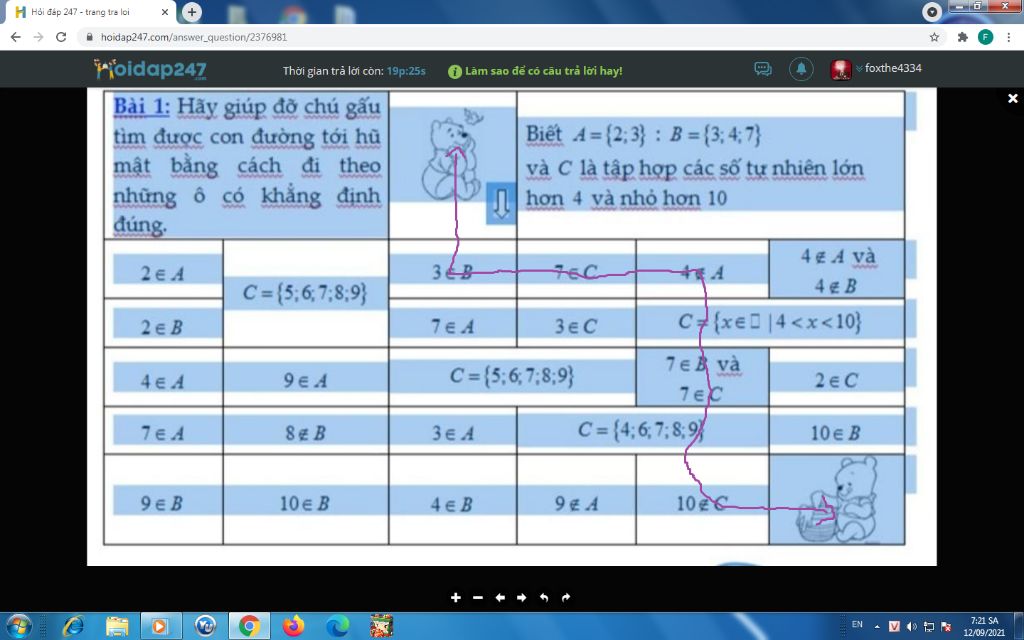 Hỏi đáp 247 - trang tra loi
hoidap247.com/answer_question/2376981
F
Hoidap247.com
Thời gian trả lời còn: 19p:25s
Làm sao để có câu trả lời hay!
foxthe4334
Bài 1: Hãy giúp đỡ chú gấu
tìm được con đường tới hũ
mật bằng cách đi theo
những ô có khẳng định
đúng.
Biết A={2;3} : B={3;4;7}
và C là tập hợp các số tự nhiên lớn
hơn 4 và nhỏ hơn 10
2∈A
C={5;6;7;8;9}
3∈B
7∈C
4∉A
4∉A và
4∉B
2∈B
7∈A
3∈C
C={x∈□ |4<x<10}
4∈A
9∈A
C={5;6;7;8;9}
7∈B và
7∈C
2∈C
7∈A
8∉B
3∈A
C={4;6;7;8;9}
10∈B
9∈B
10∈B
4∈B
9∉A
10∉C
EN
7:21 SA
12/09/2021